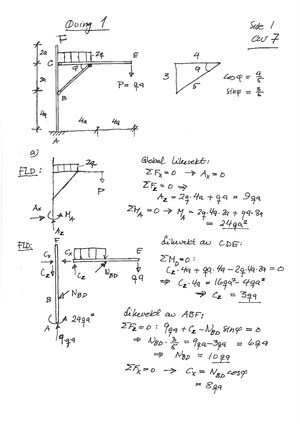 Øving 1
Side 1
CW 7
F
2a
C
2q
φ
E
2a
B
P = qa
4a
4a
4a
A
4
3
φ
5
cosφ = 4/5
sinφ = 3/5
a)
FLD:
2q
P
Ax
MA
Az
Global likevekt:
ΣFx = 0 → Ax = 0
ΣFz = 0 ⇒
Az = 2q·4a + qa = 9qa
ΣMA = 0 → MA = 2q·4a·2a + qa·8a
= 24qa²
FLD:
F
Cx
Cz
Cx
Cz
NBD
E
qa
B
NBD
A
24qa²
9qa
Likevekt av CDE:
ΣMD = 0:
Cz·4a + qa·4a − 2q·4a·2a = 0
⇒ Cz·4a = 16qa² − 4qa²
⇒ Cz = 3qa
Likevekt av ABF:
ΣFz = 0: 9qa + Cz − NBD sinφ = 0
⇒ NBD·3/5 = 9qa − 3qa = 6qa
⇒ NBD = 10qa
ΣFx = 0 → Cx = NBD cosφ
= 8qa